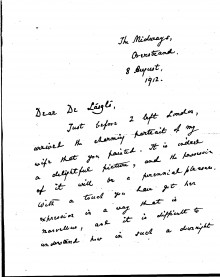 The Midways,
Overstrand.
8 August,
1912.
Dear De László,
Just before I left London,
arrived the charming portrait of my
wife that you painted. It is indeed
a delightful picture, and the possession
of it will be a perennial pleasure.
With a touch you have got her
expression in a way that is
marvellous, and it is difficult to
understand how in such a